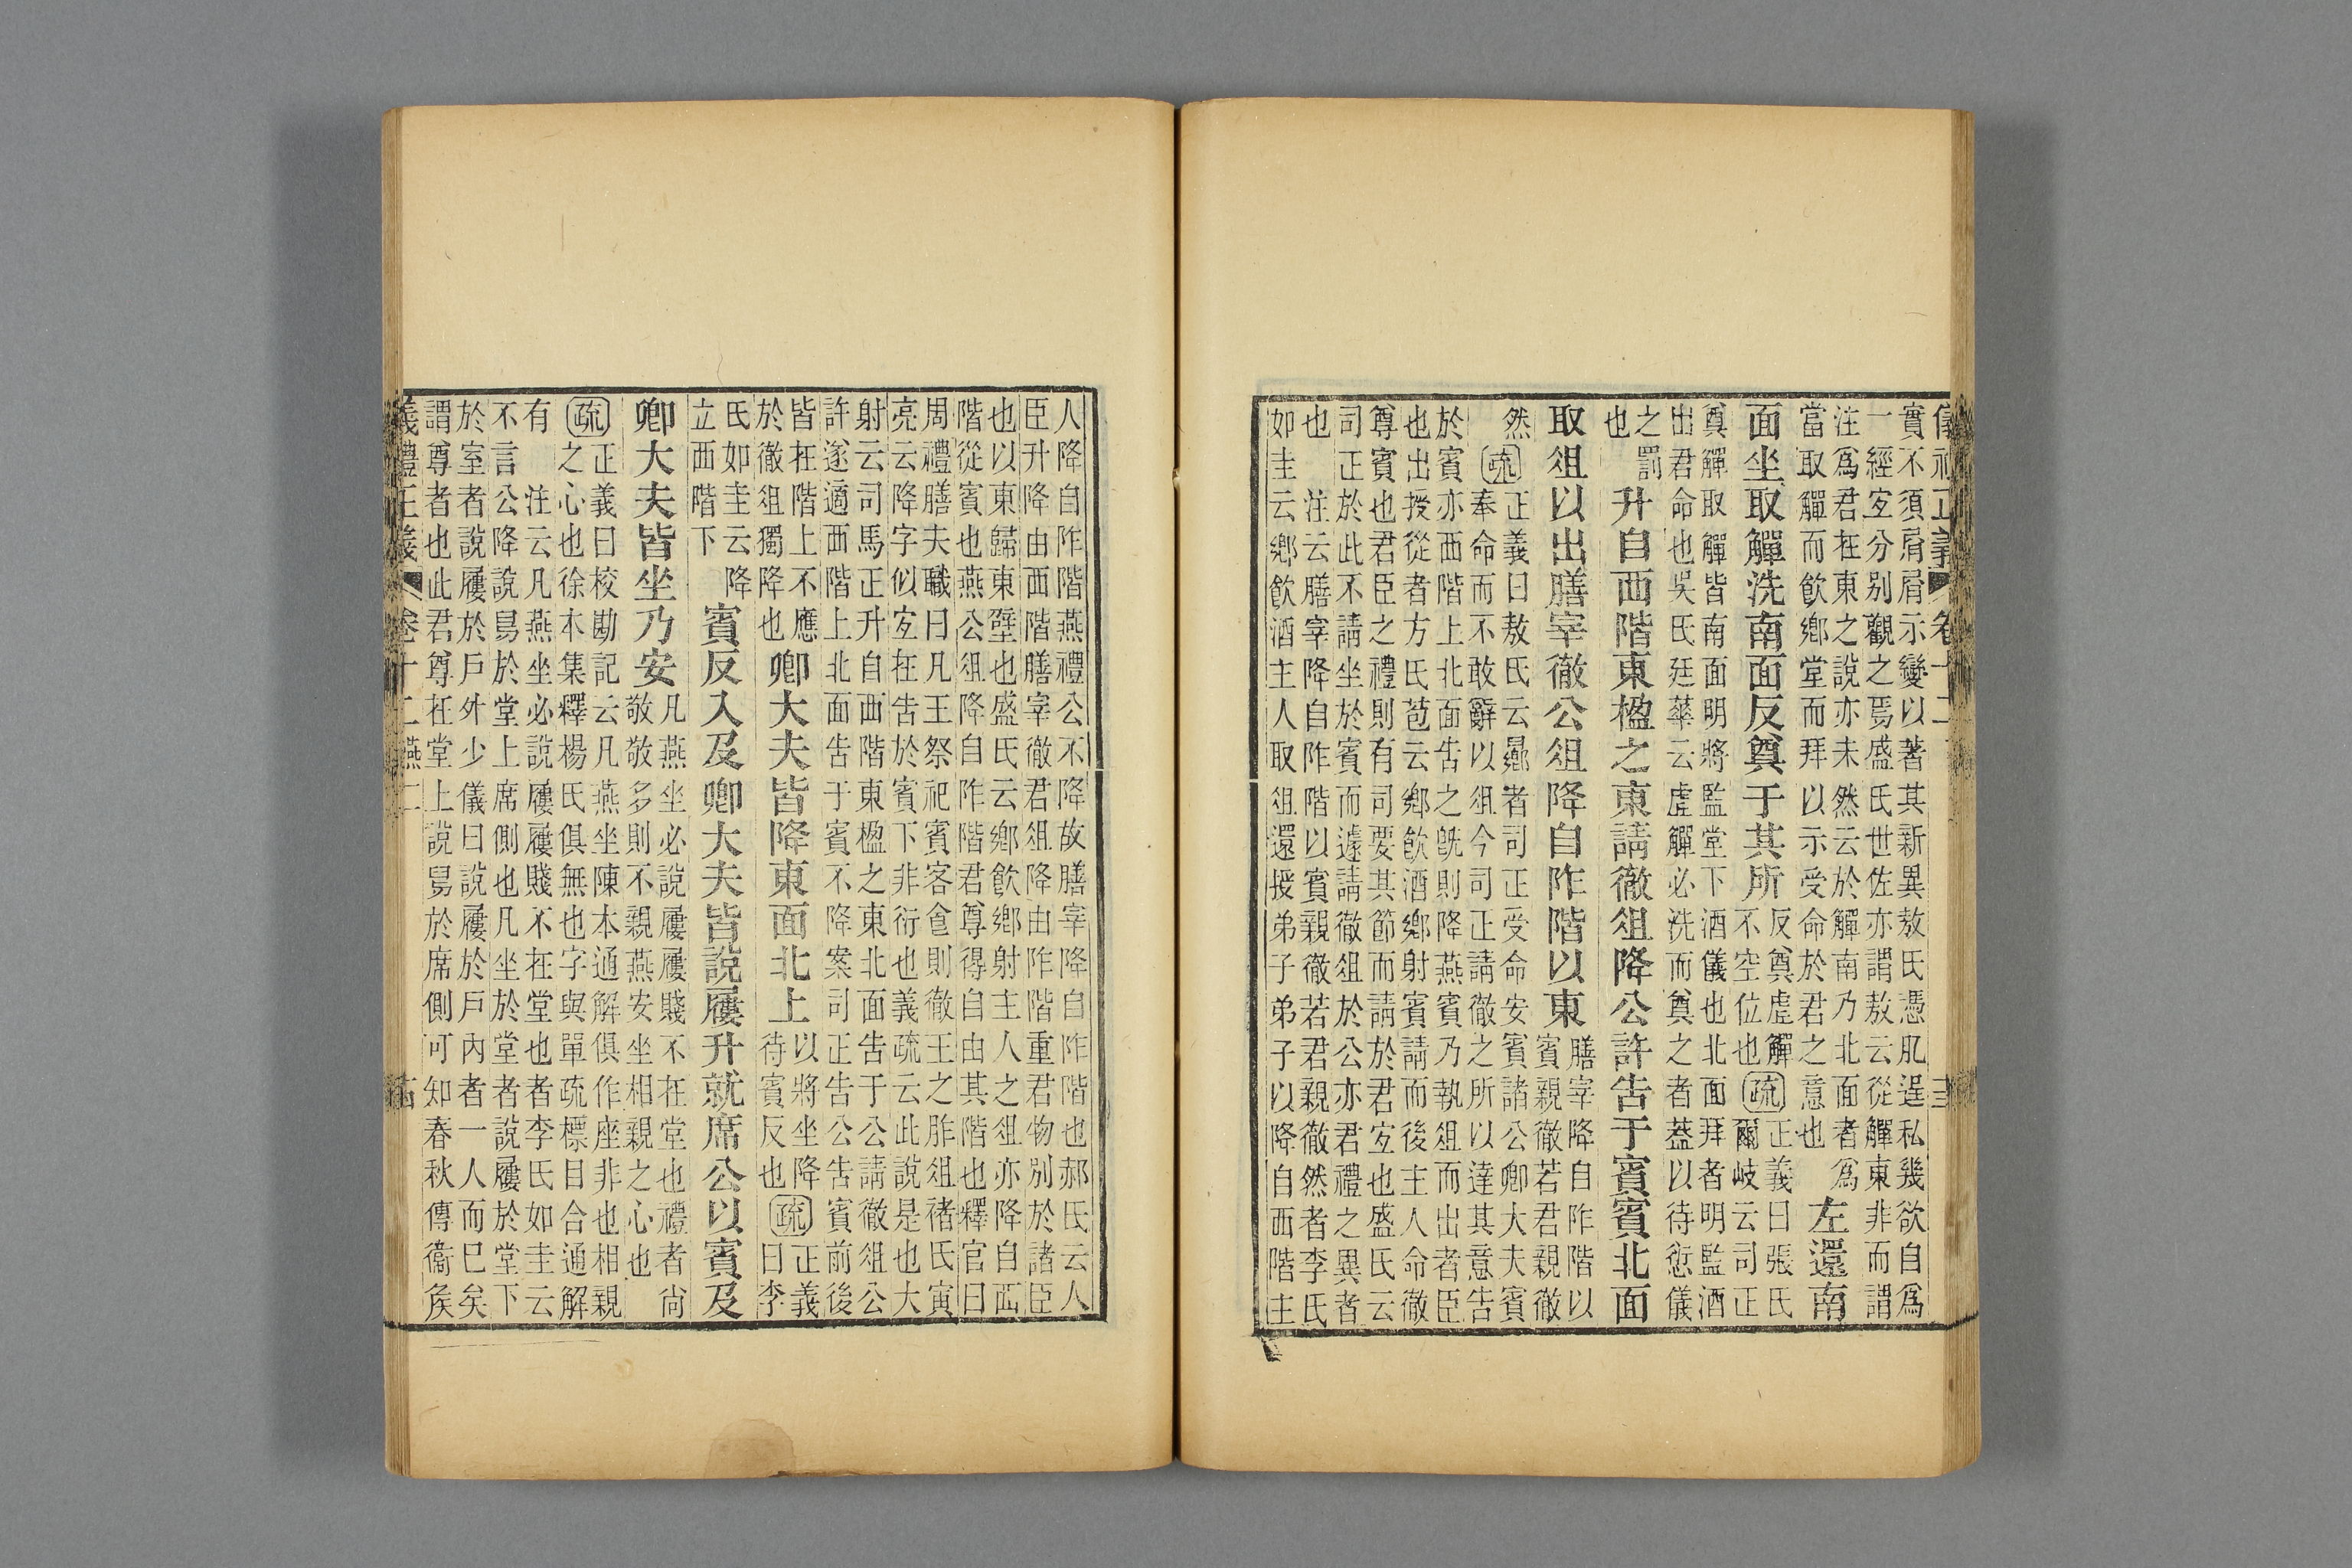 實不須屑屑示變以著其新異敖氏憑肊逞私幾欲自爲
一經㝎分别觀之焉盛氏世佐亦謂敖云從觶東非而謂
注爲君在東之說亦未然云於觶南乃北面者爲
當取觶而飲鄉堂而拜以示受命於君之意也
左還南
面坐取觶洗南面反奠于其所
反奠虚觶
不空位也
疏
正義曰張氏
爾岐云司正
奠觶取觶皆南面明將監堂下酒儀也北面拜者明監酒
出君命也吳氏廷華云虚觶必洗而奠之者葢以待愆儀
之罰
也
升自西階東楹之東請徹俎降公許告于賓賓北面
取俎以出膳宰徹公俎降自阼階以東
膳宰降自阼階以
賓親徹若君親徹
然
疏
正義曰敖氏云曏者司正受命安賓諸公卿大夫賓
奉命而不敢辭以俎今司正請徹之所以達其意告
於賓亦西階上北面告之旣則降燕賓乃執俎而出者臣
也出授從者方氏苞云鄉飲酒鄉射賓請而後主人命徹
尊賓也君臣之禮則有司要其節而請於君㝎也盛氏云
司正於此不請坐於賓而遽請徹俎於公亦君禮之異者
也　注云膳宰降自阼階以賓親徹若君親徹然者李氏
如圭云鄉飲酒主人取俎還授弟子弟子以降自西階主
人降自阼階燕禮公不降故膳宰降自阼階也郝氏云人
臣升降由西階膳宰徹君俎降由阼階重君物別於諸臣
也以東歸東壁也盛氏云鄉飲鄉射主人之俎亦降自西
階從賓也燕公俎降自阼階君尊得自由其階也釋官曰
周禮膳夫職曰凡王祭祀賓客食則徹王之胙俎褚氏寅
亮云降字似㝎在告於賓下非衍也義疏云此說是也大
射云司馬正升自西階東楹之東北面告于公請徹俎公
許遂適西階上北面告于賓不降案司正告公告賓前後
皆在階上不應
於徹俎獨降也
卿大夫皆降東面北上
以將坐降
待賓反也
疏
正義
曰李
氏如圭云降
立西階下
賓反入及卿大夫皆說屨升就席公以賓及
卿大夫皆坐乃安
凡燕坐必說屨屨賤不在堂也禮者尚
敬敬多則不親燕安坐相親之心也
疏
正義曰校勘記云凡燕坐陳本通解俱作座非也相親
之心也徐本集釋楊氏俱無也字與單疏標目合通解
有　注云凡燕坐必說屨屨賤不在堂也者李氏如圭云
不言公降說屨於堂上席側也凡坐於堂者說屨於堂下
於室者說屨於戶外少儀曰說屨於戶內者一人而已矣
謂尊者也此君尊在堂上說屨於席側可知春秋傳衞矦
義禮正義　卷十二燕二